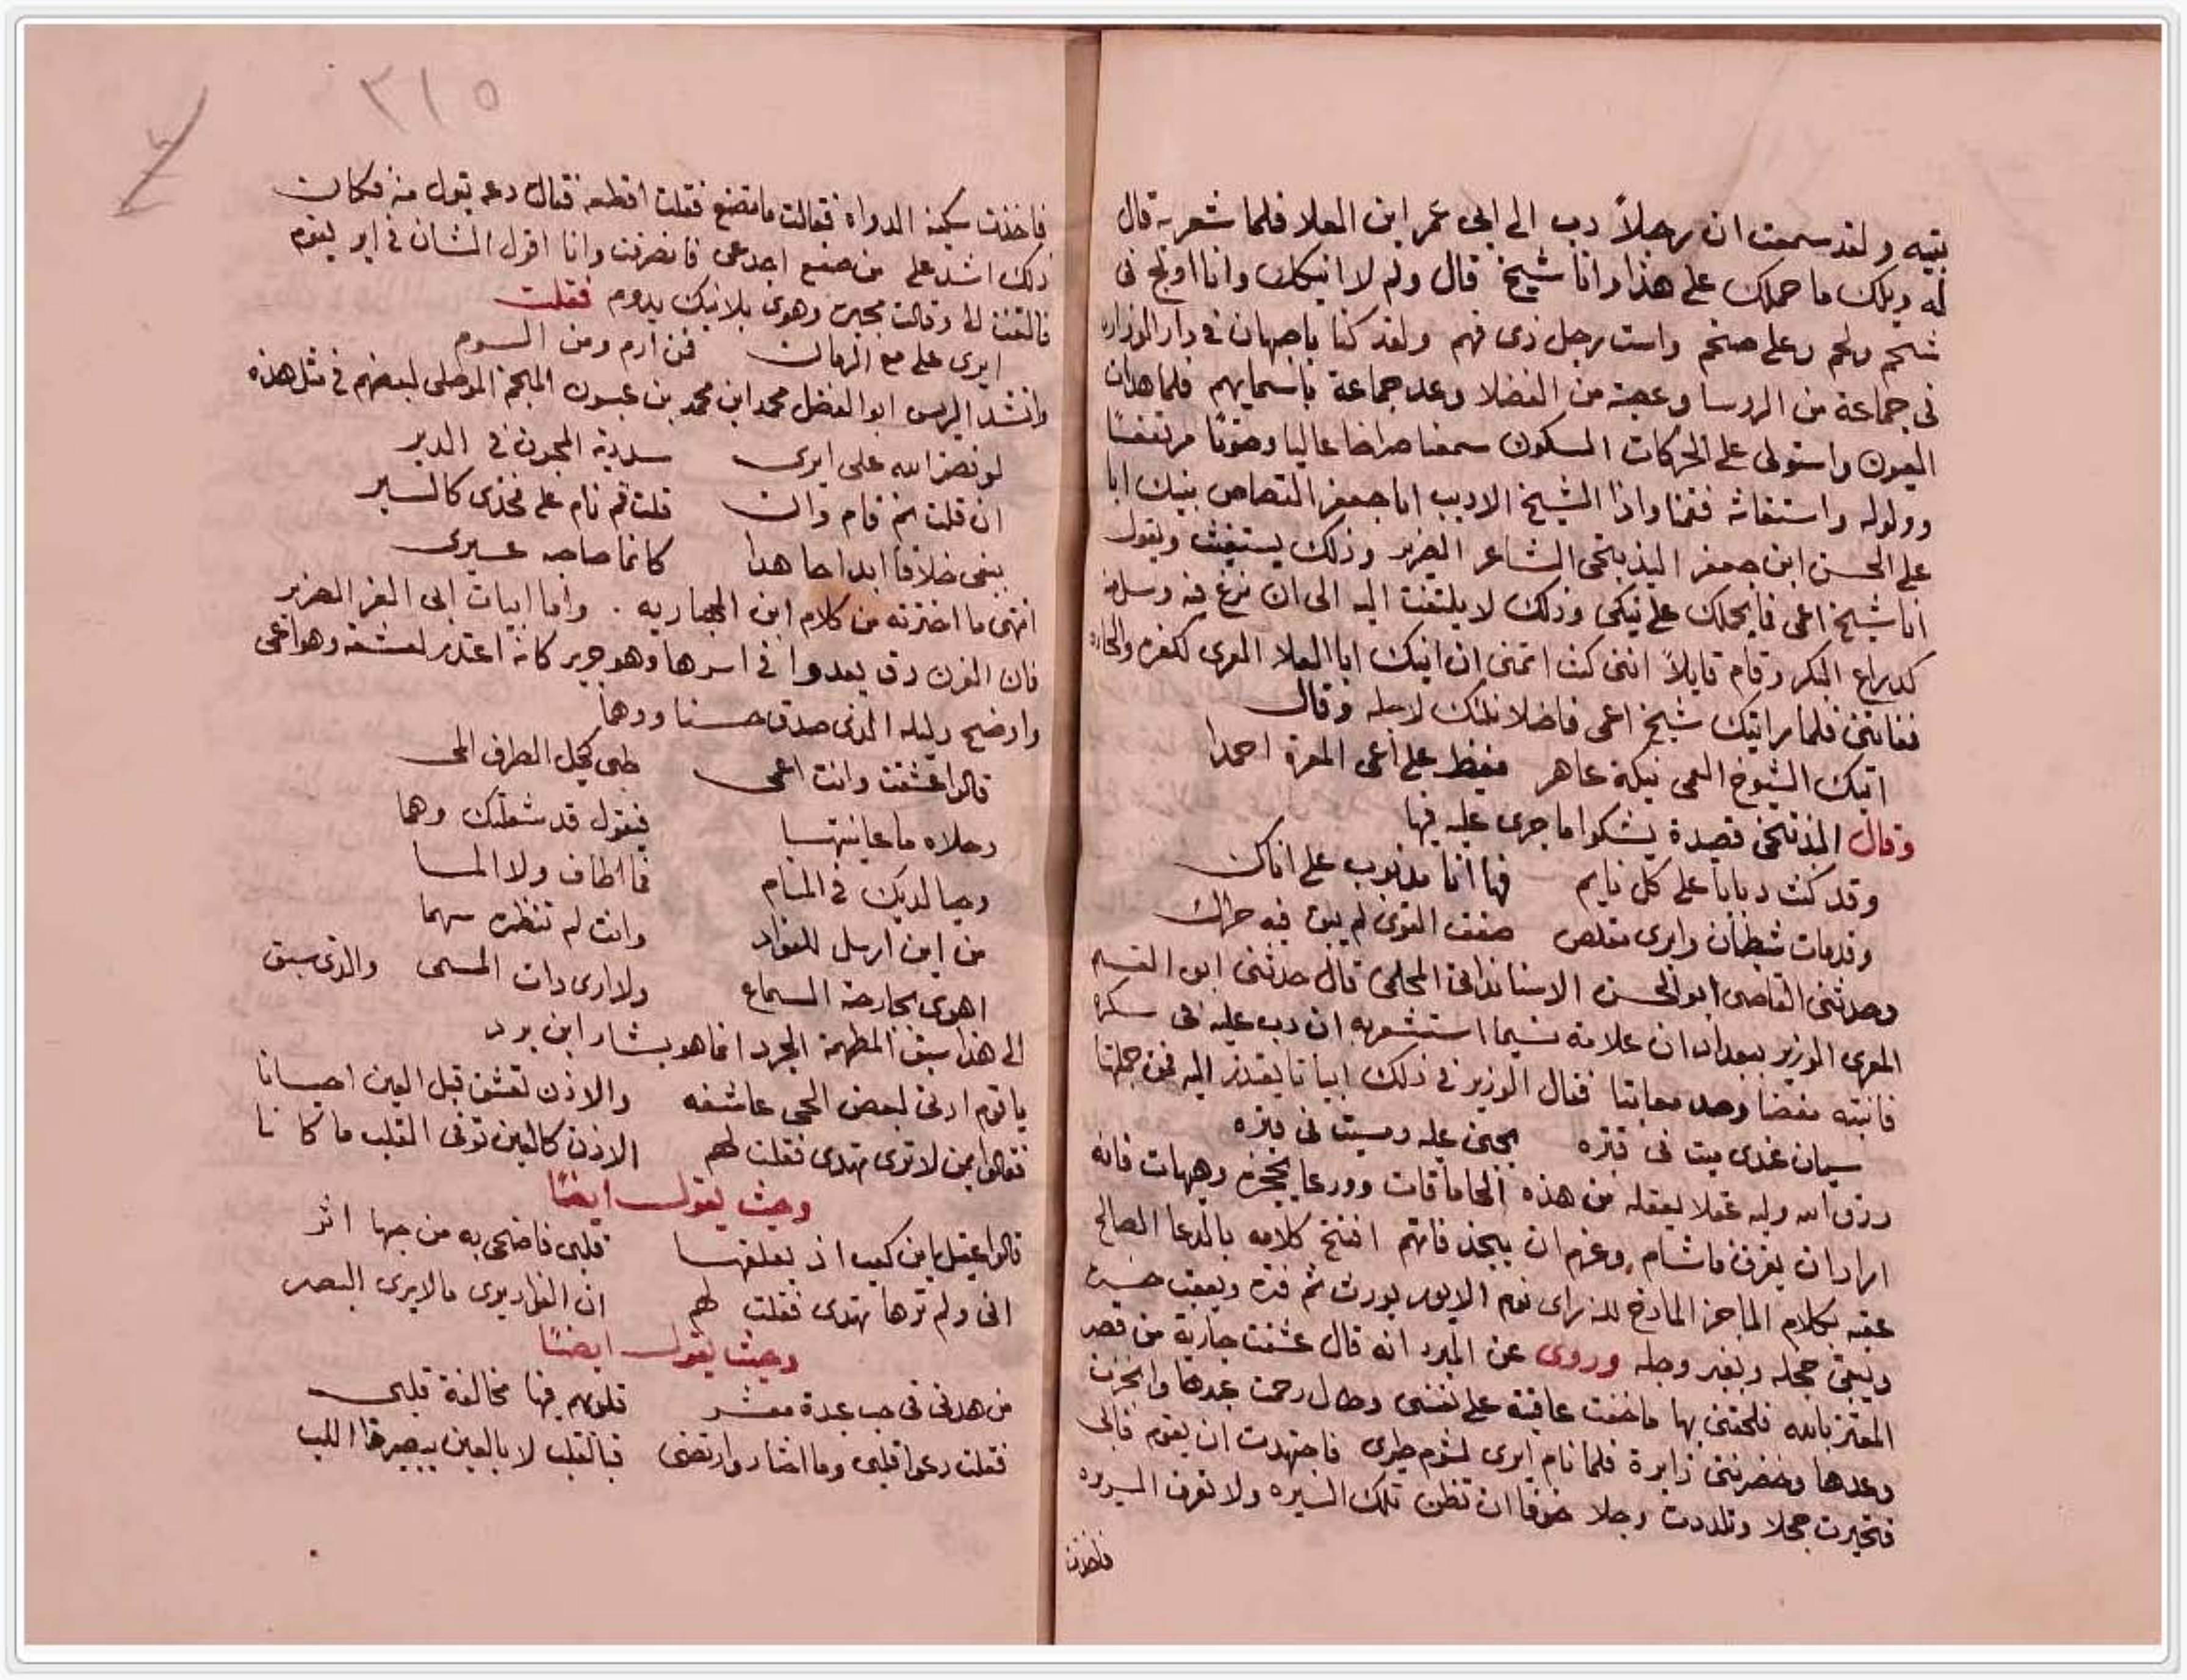 بتيه ولقد سمعت ان رجلاً دب الى ابى عمر ابن العلا فلما شعر به قال
له ويلك ما حملك على هذا وانا شيخ قال ولم لا انيكك وانا اولج فى
شحم ولحم وعلى ضخم واست رجل ذى فهم ولقد كنا باصبهان فى دار الوزاره
فى جماعة من الروسا وعصبة من الفضلا وعد جماعة باسمايهم فلما هدات
العيون واستولى على الحركات السكون سمعنا صراخا عاليا وصوتا مرتفعا
وولوله واستغاثه فقمنا واذا الشيخ الاديب ابا جعفر القصاص ينيك ابا
على الحسن ابن جعفر البندنيجى الشاعر الضرير وذلك يستغيث ويقول
انا شيخ اعمى فما يحملك على نيكى وذلك لا يلتفت اليه الى ان فرغ فيه وسل منه
كذراع البكر وقام قايلاً اننى كنت اتمنى ان انيك ابا العلا المعرى لكفره والحاده
ففاتنى فلما رايتك شيخ اعمى فاضلا نكتك لاجله وقال
انيك الشيوخ العمى نيكة عاهر فيغظ على اعمى المعرة احمدا
وقال البندنيجى قصيدة يشكوا ما جرى عليه فيها
وقد كنت دبابا على كل نايم فها انا مدبوب على اناك
وقد مات شيطان وايرى مقلص ضعف القوى لم يبق فيه حراك
وحدثنى القاضى ابو الحسن المحلمى قال حدثنى ابو القسم
المغرى الوزير ببغداد ان غلامه نسيما استشعر به ان دب عليه فى سكره
فانتبه مغضبا وجد معاتبا فقال الوزير فى ذلك ابياتا يعتذر اليه فمن جملتها
سيان عندى ميت فى قبره يجنى عليه وميت فى قبره
رزق الله وليه عقلا يعقله من هذه الحماقات وورعا يحجزه وهيهات فانه
اراد ان يغرق فاشام وعزم ان ينجد فاتهم افتتح كلامه بالدعا الصالح
عقبه بكلام الماجز المازح للزراى نعم الاير يورث ثم فتره ويعقب حسرة
ويبقى خجله وبغير وجله وروى عن المبرد انه قال عشقت جارية من قصر
المعتز بالله فلحقنى بها ما خفت عاقبة على نفسى وطال رحمت عبدها وانجزت
وعدها وحضرتنى زايرة فلما نام ايرى لشوم طيرى فاجتهدت ان يقوم فابى
فتحيرت خجلا وتلددت وجلا خوفا ان تظن تلك السيره ولا تعرف السريره
فاخذت
٣١٥
فاخذت سكينة الدواه فقالت ما تصنع فقلت اقطعه فقال دعه تبول منه فكان
ذلك اشد على من صنيع اجدعى فانصرفت وانا اقول الشان فى اير يقوم
فالتفتت لى وقالت مجيبة وهوى بلا نيك يدوم فقلت
ايرى على مع الزمان فمن اذم ومن الوم
وانشد الريس ابو الفضل محمد ابن محمد بن عيسون المنجم الموصلى لبعضهم فى مثل هذه
لو نصر الله على ايرى سددته المجون فى الدير
ان قلت نم قام وان قلت قم نام على فخذى كالسير
يبغى خلافا ابدا جاهدا كانما صاحبه غيرى
انتهى ما اخترته من كلام ابن الهبارية. واما ابيات ابى العز الضرير
فان الفرزدق يعدوا فى اسرها وهو جرير كانه اعتذر لعشقه وهو اعمى
واوضح دليله الذى صدق حسنا ودهما
قالوا عشقت وانت اعمى ظبى كحيل الطرف المى
وحلاه ما عاينتها فيقول قد شغلتك وهما
وخياله بك فى المنام فما اطاف ولا الما
من اين ارسل للفواد وانت لم تنظره سهما
اهوى بجارحة السماع ولا ارى ذات المسمى والذى سبق
الى هذا سبق المطهمة الجرد انما هو بشار ابن برد
يا قوم اذنى لبعض الحى عاشقه والاذن تعشق قبل العين احيانا
فقالوا بمن لا ترى تهذى فقلت لهم الاذن كالعين توفى القلب ما كانا
وحيث يقول ايضا
قالوا عقيل بابن كعب اذ تعلقها قلبى فاضحى به من حبها اثر
انى ولم ترها تهذى فقلت لهم ان الفواد يرى ما لا يرى البصر
وحيث يقول ايضا
من هدنى فى حب عبدة معشر قلوبهم فيها مخالفة قلبى
فقلت دعوا قلبى وما اختار وارتضى فبالقلب لا بالعين يبصر ذا اللب